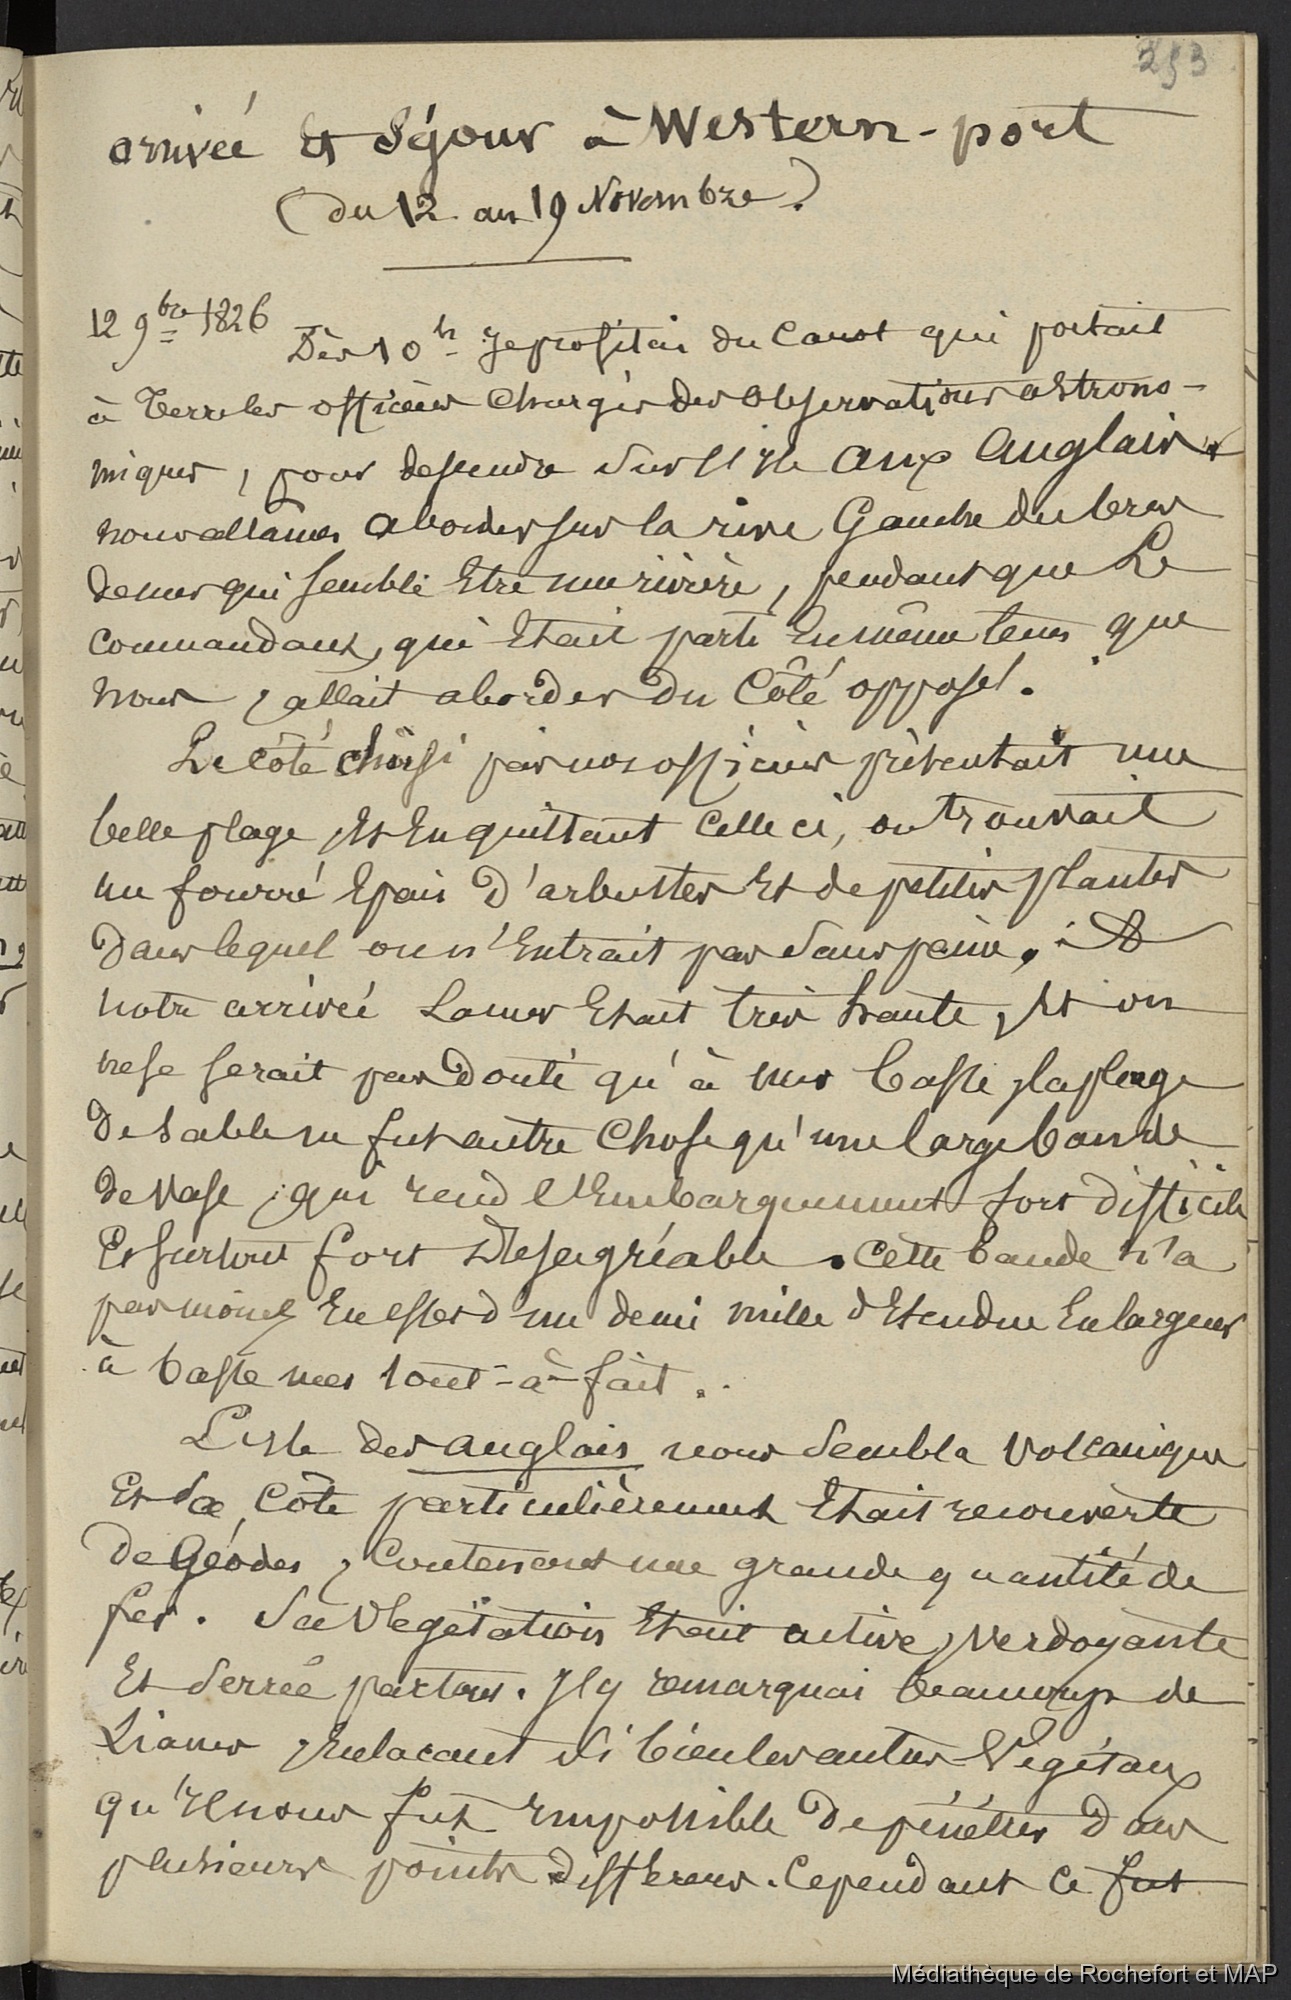 253
arrivée Et Séjour à Western-port
(du 12 au 19 Novembre.)
12 9bre 1826 Dès 10h je profitai du Canot qui portait
à Terre les officiers Chargés des Observations astrono-
miques, pour descendre sur l'isle aux Anglais
nous allâmes aborder sur la rive Gauche du bras
de mer qui semble Etre une rivière, pendant que Le
Commandant, qui Etait parti En même tems que
nous, allait aborder du Côté opposé.
Le côté choisi par nos officiers présentait une
belle plage, Et En quittant Celle ci, on trouvait
un fourré Epais D'arbustes Et de petites plantes
Dans lequel on n'Entrait pas sans peine. À
notre arrivée La mer Etait très haute, Et on
ne se serait pas Douté qu'à mer basse, la plage
De Sable ne fut autre Chose qu'une large bande
de Vase, qui rend l'Embarquement fort Difficile
Et surtout fort Desagréable. Cette bande n'a
pas moins En effet d'un demi mille d'Etendue En largeur
à basse mer tout-à-fait.
L'isle des anglais nous Sembla Volcanique
Et Sa Côte particulièrement Etait recouverte
De Géodes, Contenant une grande quantité de
fer. Sa Vegetation Etait active, Verdoyante
Et Serrée partout. J'ly remarquai beaucoup de
Lianes, Enlacant si bien les autres Végétaux
qu'il nous fut Impossible De pénétrer Dans
plusieurs points Differens. Cependant Ce fut
Médiathèque de Rochefort et MAP